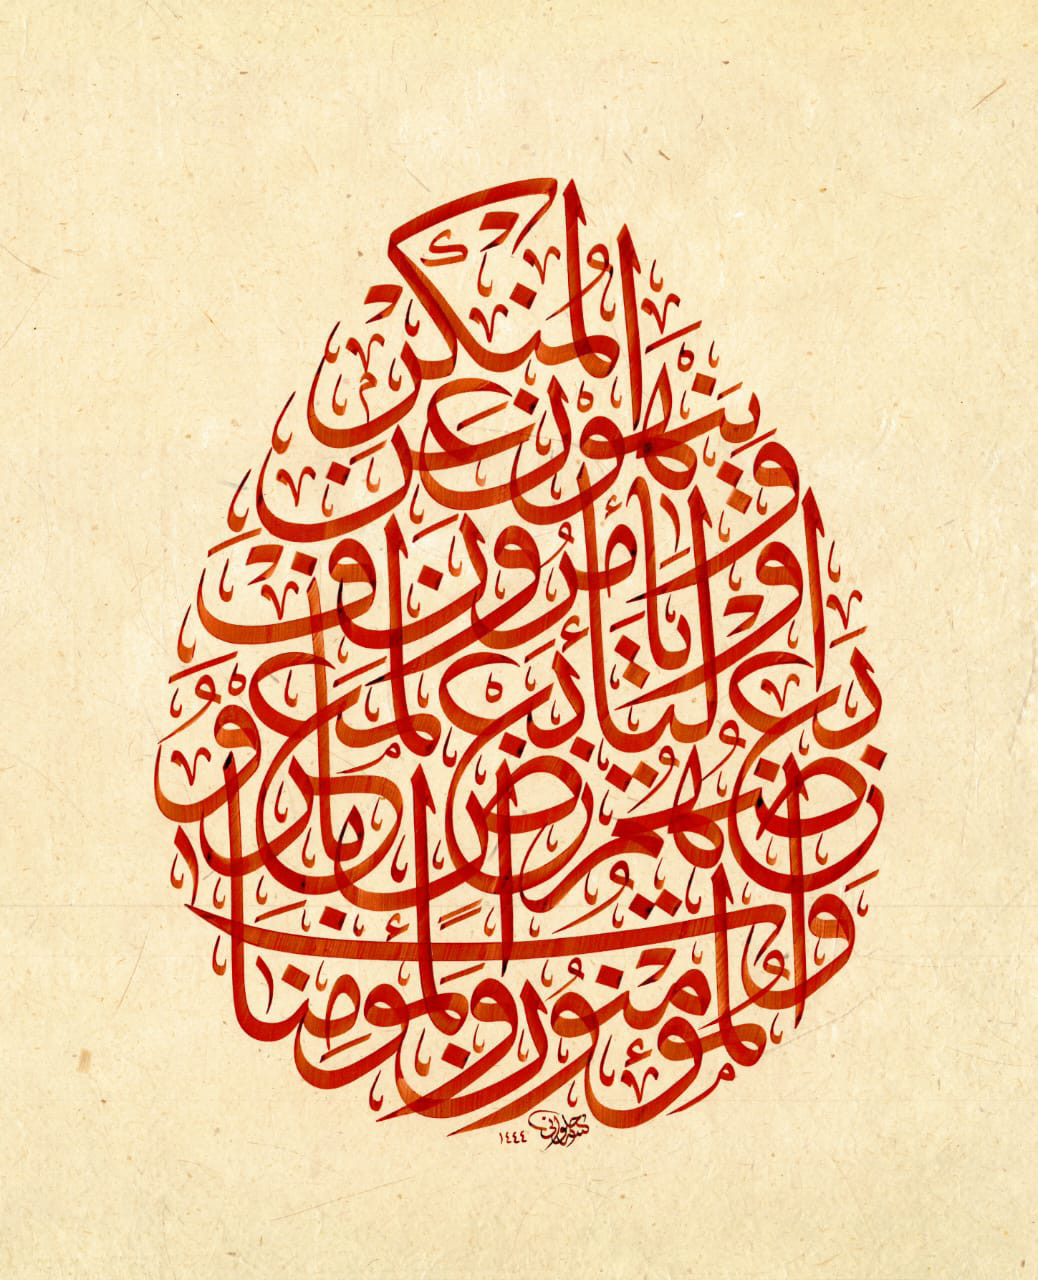 والمؤمنون والمؤمنات
بعضهم أولياء بعض
يأمرون بالمعروف
وينهون عن المنكر
١٤٤٤